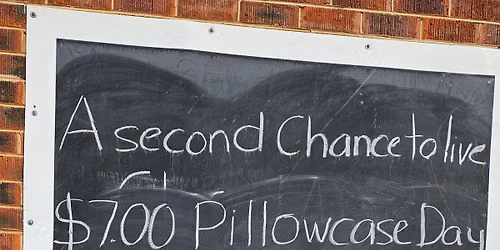 A second Chance to live
$7.00 Pillowcase Day